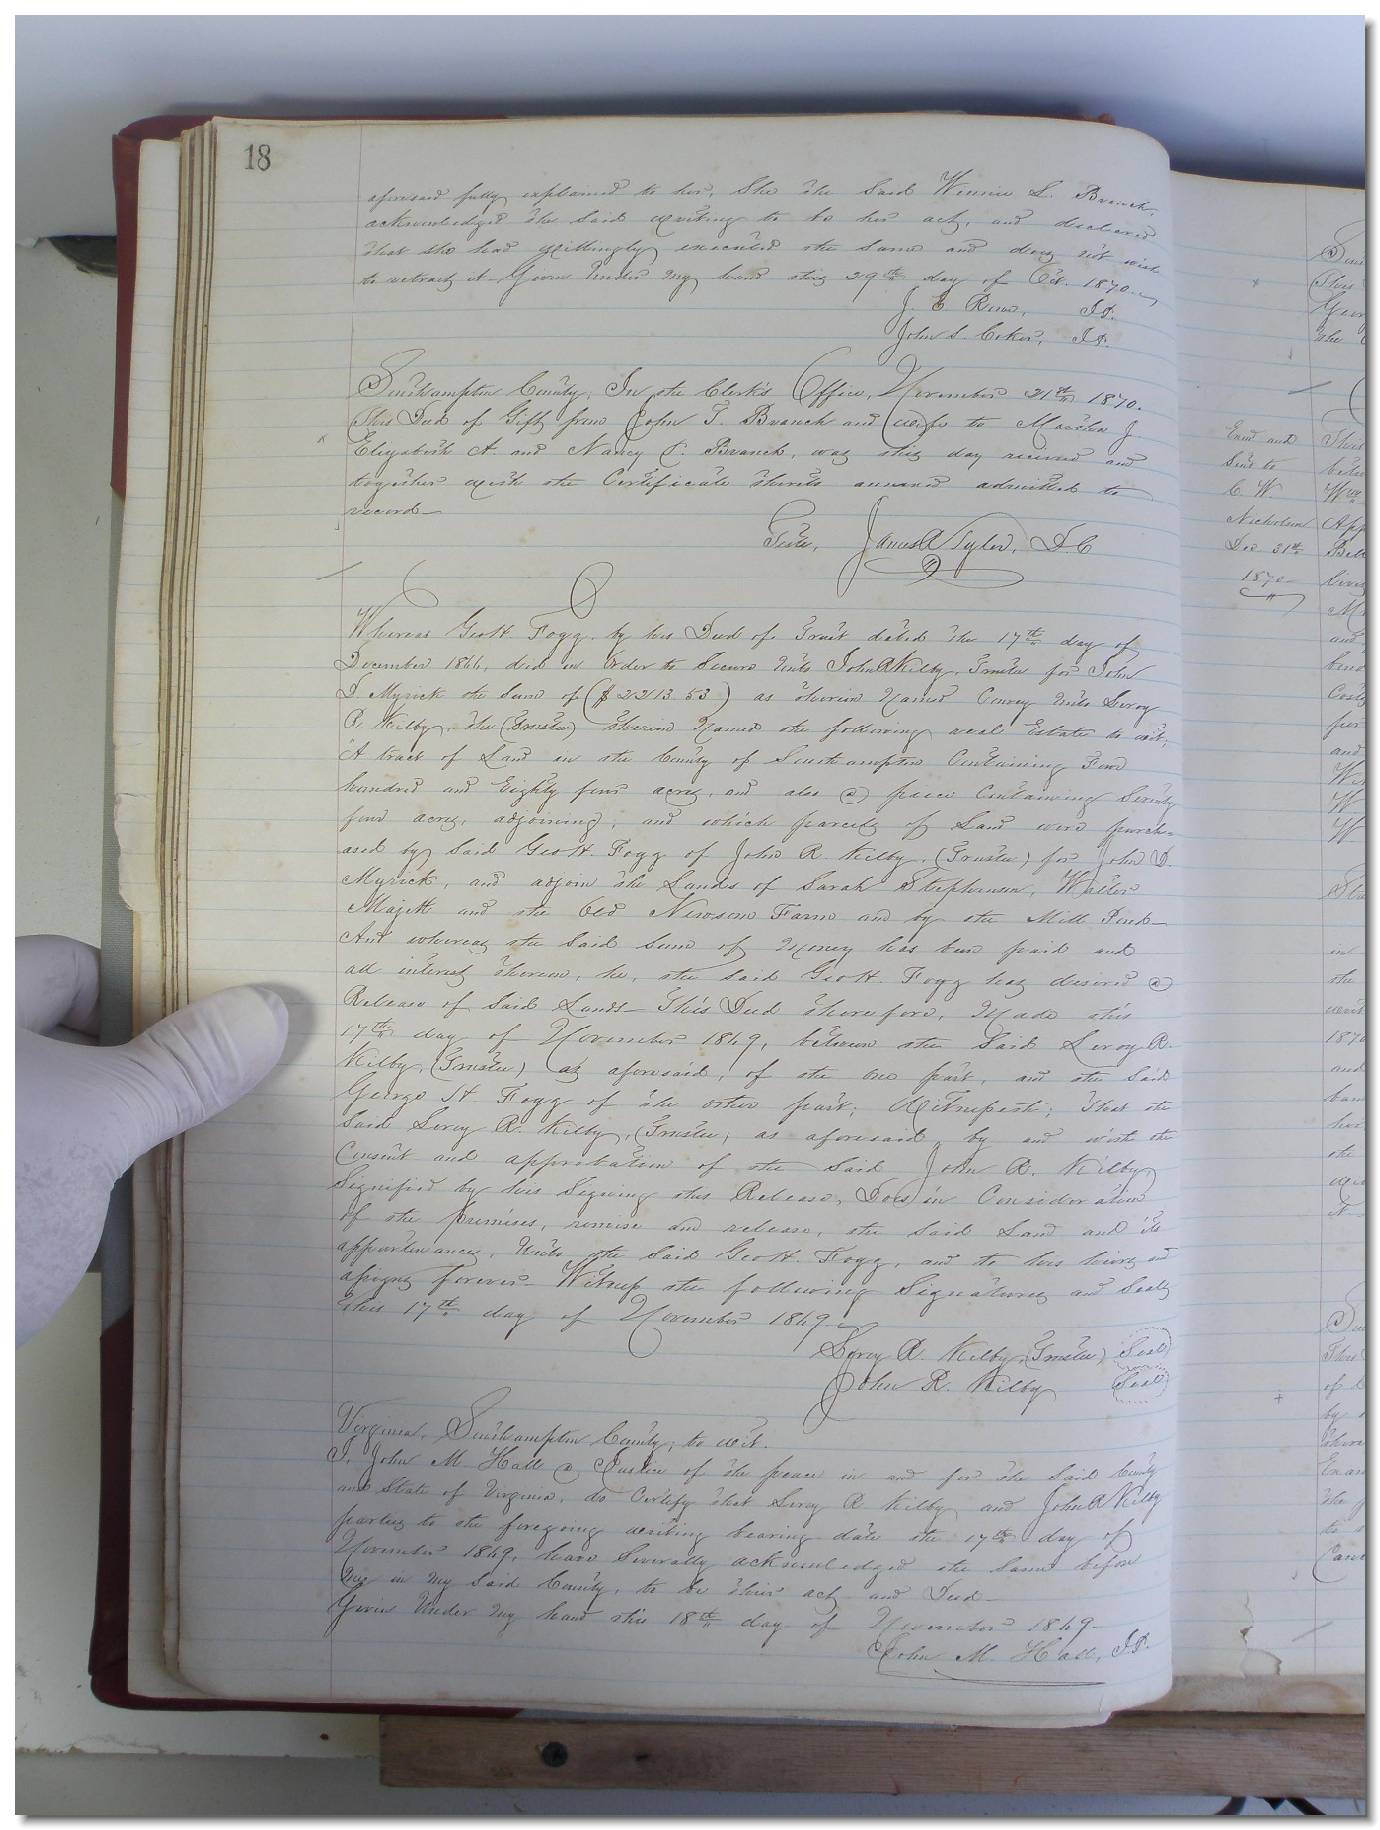 18
aforesaid fully explained to her, She the Said Winnie L. Branch,
acknowledged the Said writing to be her act, and declared
that she had willingly executed the Same and does not wish
to retract it Given Under My hand this 29th day of Oct. 1870.
J. E. J.P.
John S. Coker, J.P.
Southampton County, In the Clerk's Office, November 21st 1870.
This Deed of Gift from John T. Branch and wife to J.
Elizabeth A. and Nancy C. Branch, was this day received and
together with the Certificate thereto annexed admitted to
record
Teste, James R Tyler, D.C
Whereas Geo H. Fogg, by his Deed of Trust dated the 17th day of
December 1866, did in Order to Secure Unto John R Kilby, Trustee for John
D. Myrick the Sum of ($2213.53) as therein Named Convey Unto Leroy
R. Kilby, the (Trustee) therein Named the following real Estate to wit;
A tract of Land in the County of Southampton Containing Four
hundred and Eighty four acres, and also a piece Containing Seventy
four acres, adjoining, and which parcels of Land were purch=
ased by Said Geo H. Fogg of John R. Kilby, (Trustee) for John D.
Myrick, and adjoin the Lands of Sarah Stephenson, Walter
Majette and the Old Newsom Farm and by the Mill Pond
And whereas the Said Sum of Money has been paid and
all interest thereon, he, the Said Geo H. Fogg has desired a
Release of Said Lands This Deed therefore, Made this
17th day of November 1869, between the Said Leroy R.
Kilby, (Trustee) as aforesaid, of the one part, and the Said
George H Fogg of the other part; Witnesseth; that the
Said Leroy R. Kilby, (Trustee, as aforesaid, by and with the
Consent and approbation of the Said John R. Kilby
Signified by his Signing this Release, Does in Consideration
of the premises, remise and release, the Said Land and its
appurtenances, Unto the Said Geo H. Fogg, and to his heirs and
assigns forever Witness the following Signatures and Seals
this 17th day of November 1869
Leroy R. Kilby, (Trustee) Seal
John R. Kilby Seal
Virginia, Southampton County, to wit.
I, John M. Hall a Justice of the peace in and for the Said County
and State of Virginia, do Certify that Leroy R Kilby and John R Kilby
parties to the foregoing writing bearing date the 17th day of
November 1869, have Severally acknowledged the Same before
me in My Said County, to be their act and Deed
Given Under My hand this 18th day of November 1869
John M. Hall, J.P.
Exmd and
Sent to
C. W.
Nicholson
Dec 31st
1870